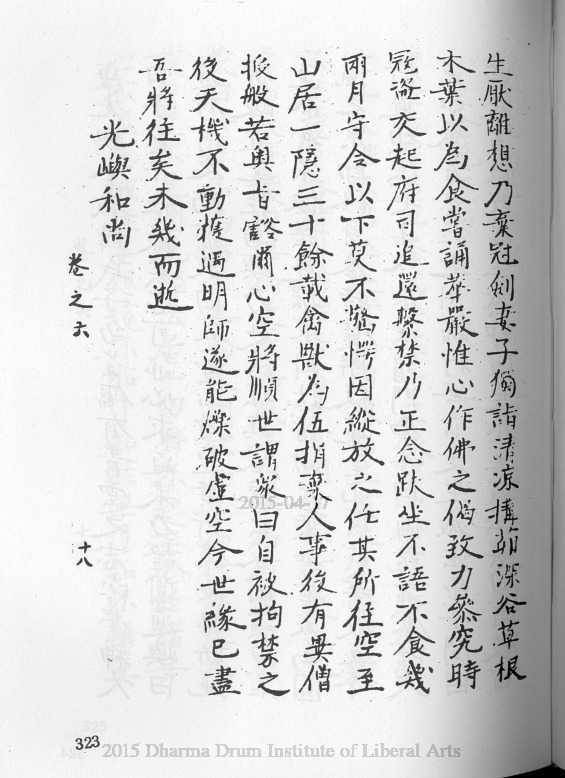 生厭離想乃棄冠剃妻子獨詣清凉搆茆深谷草根
木葉以為食嘗誦華嚴惟心作佛之偈致力叅究時
冦盜交起府司追還繫禁乃正念趺坐不語不食幾
兩月守令以下莫不驚愕因縱放之任其所往空至
山居一隱三十餘載禽獸为伍捐棄人事後有異僧
授般若奥旨豁爾心空將順世謂衆曰自被拘禁之
後天機不動獲遇明師遂能爍破虛空今世緣已盡
吾將往矣未幾而逝
光嶼和尚
卷之六
十八
323
2015-04-17
2015 Dharma Drum Institute of Liberal Arts